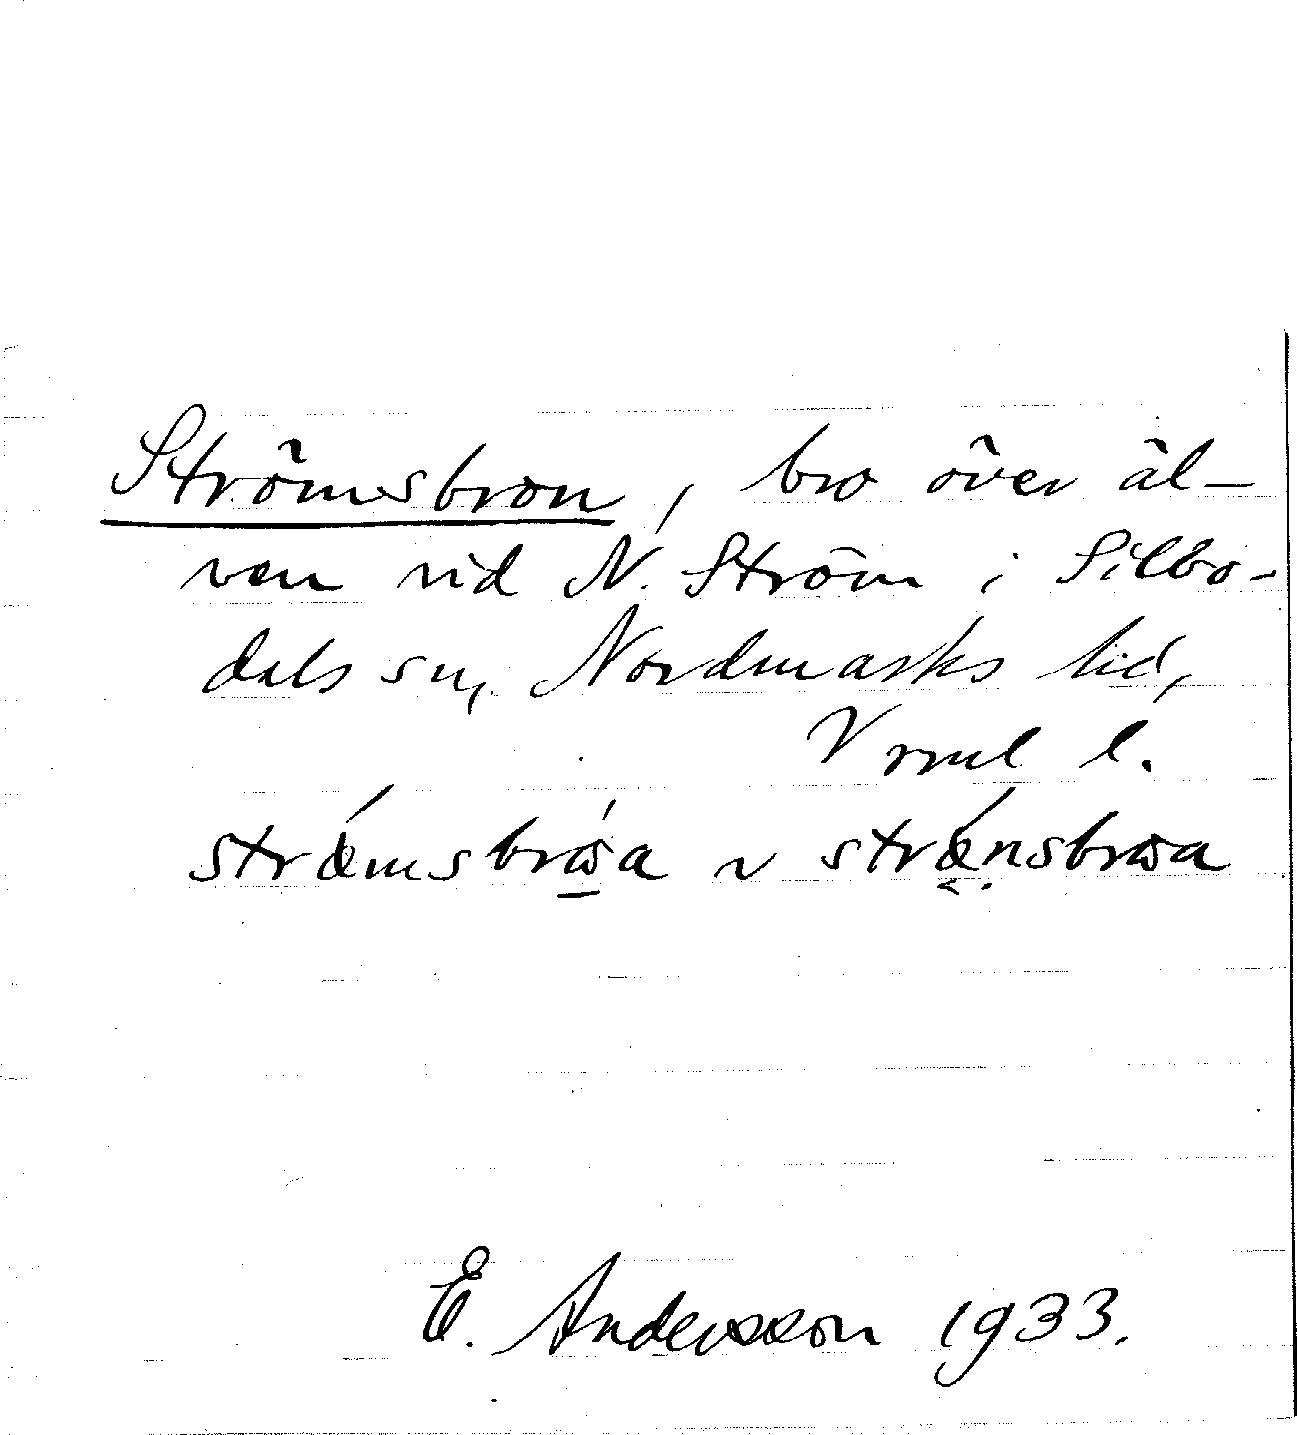 Strömsbron, bro över äl-
ven vid N. Ström i Silbo-
dals sn, Nordmarks hd,
Vrml l.
strǿmsbroa ~ strǿnsbroa
E. Andersson 1933.